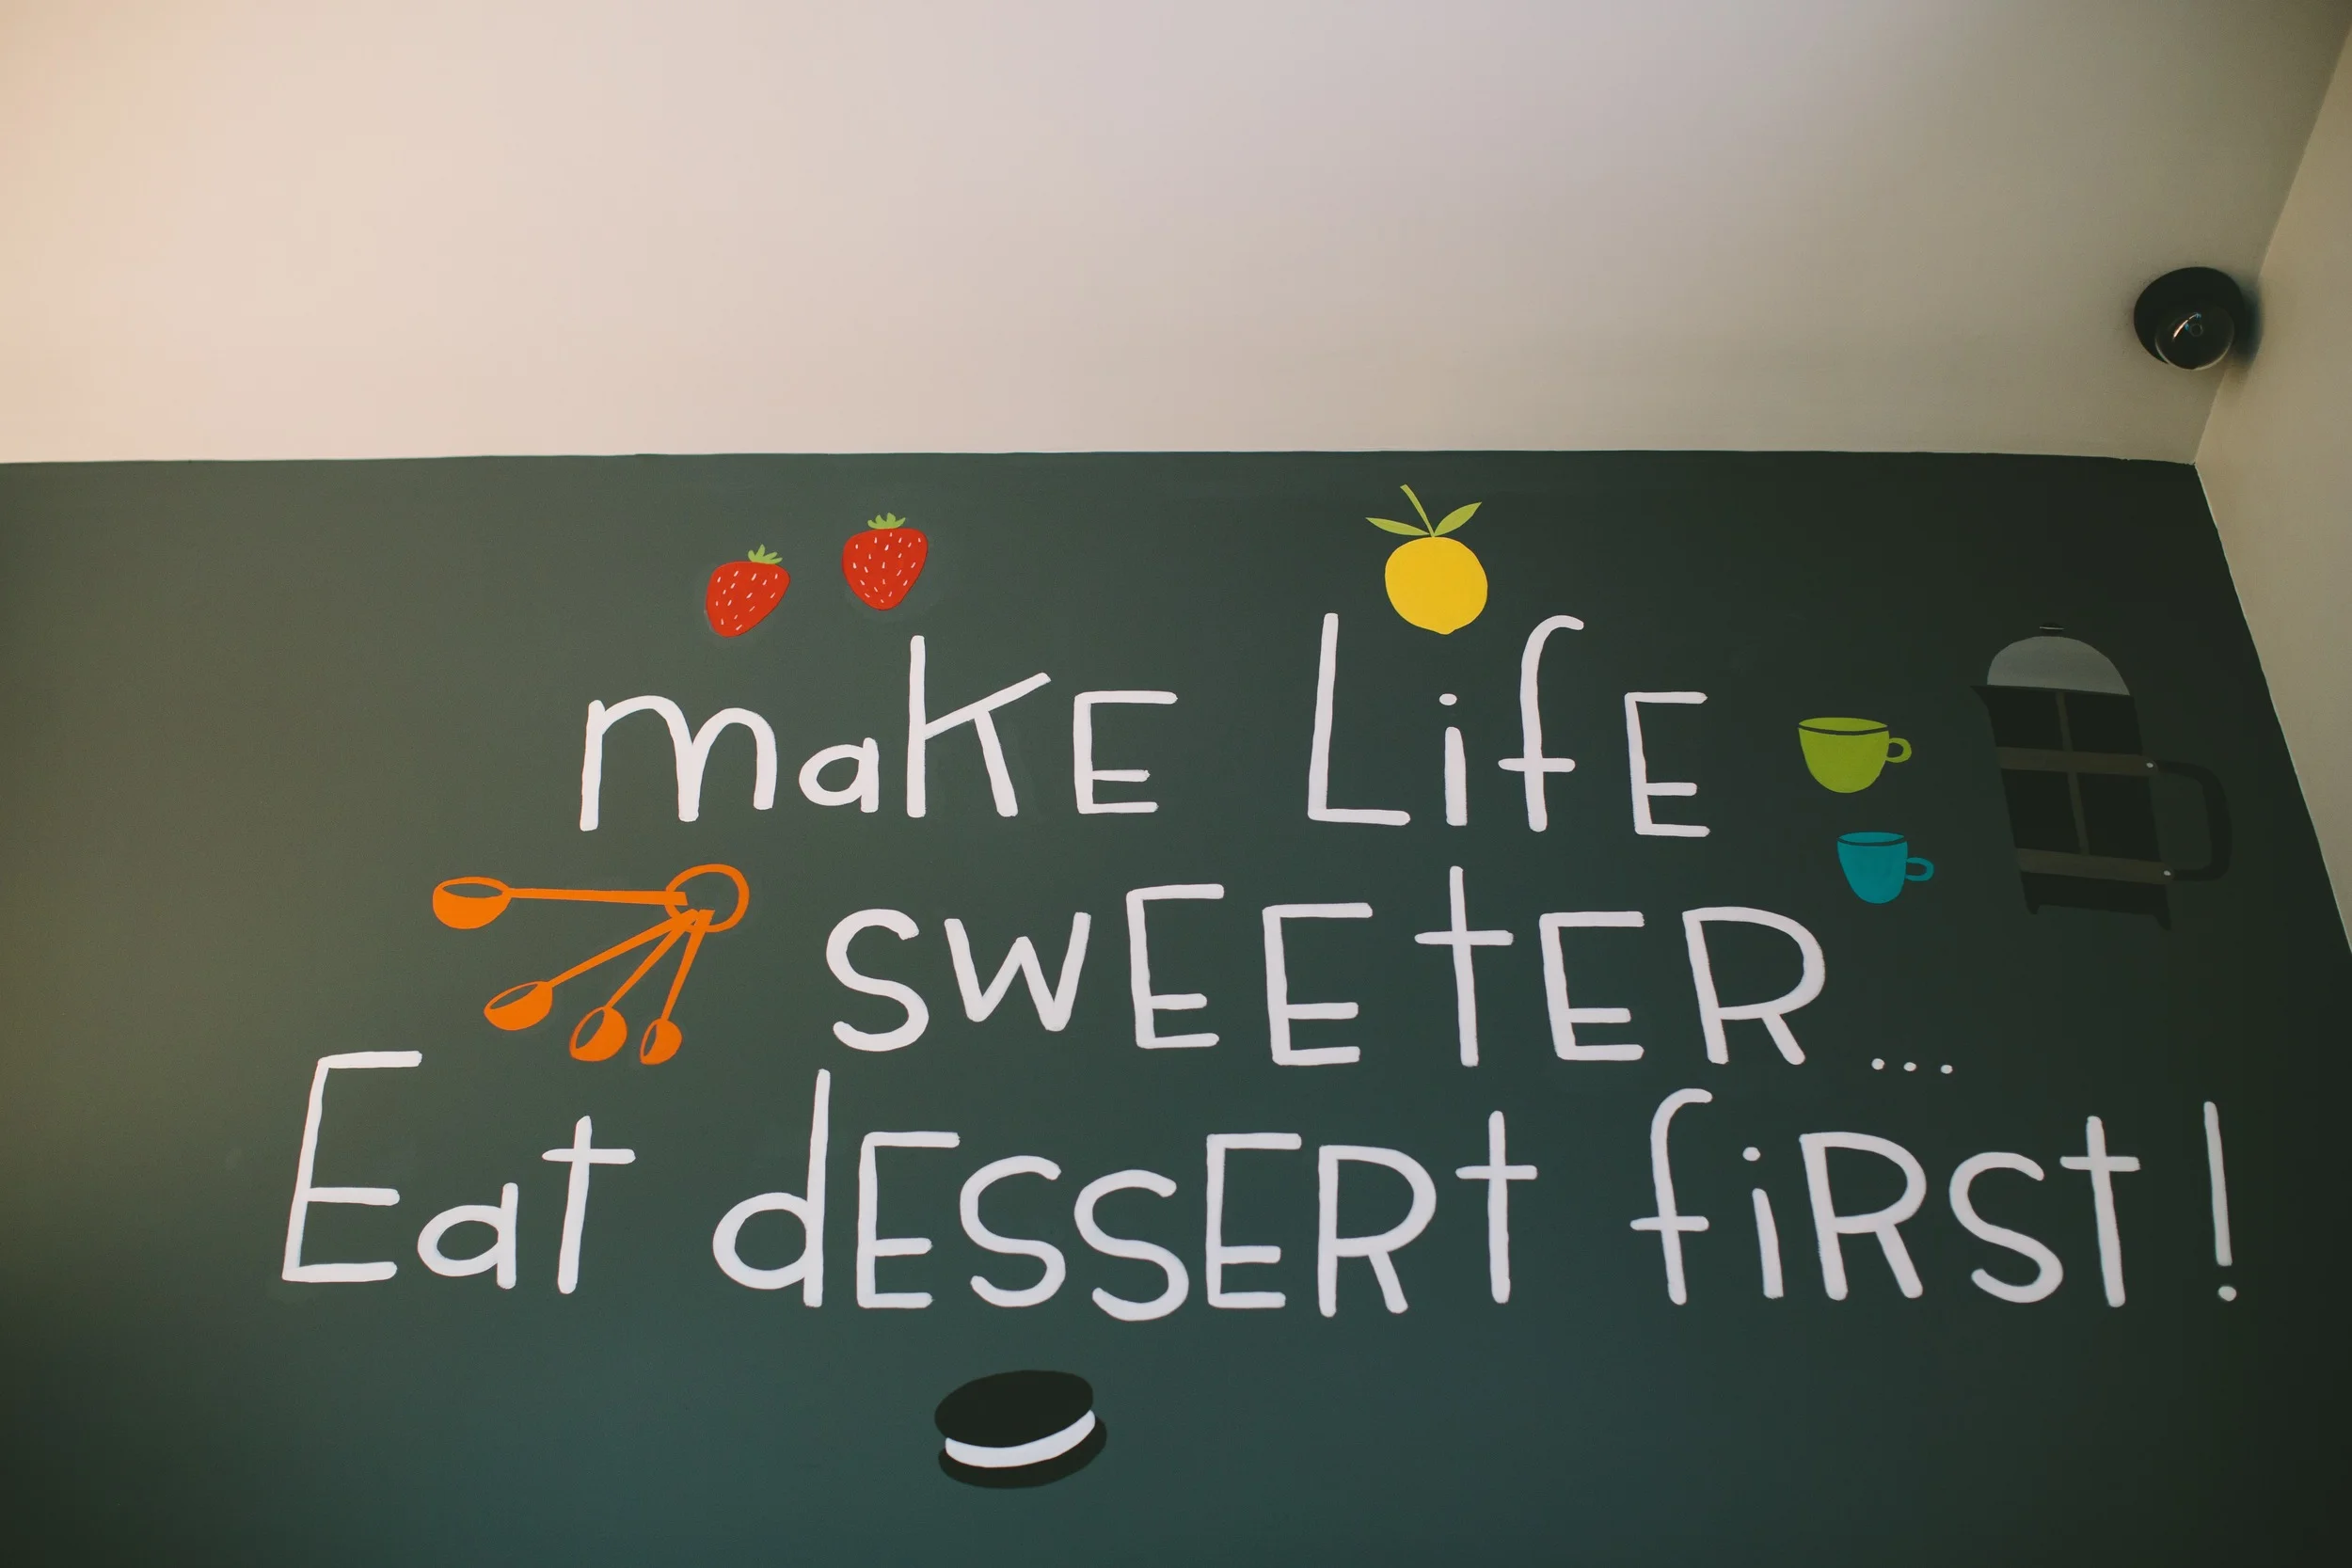 makE LifE
swEEtER...
Eat dESSERt fiRSt!